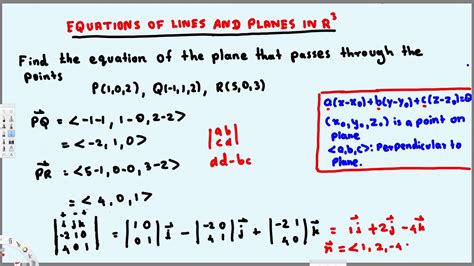 EQUATIONS OF LINES AND PLANES IN R³
Find the equation of the plane that passes through the
points
P(1,0,2), Q(-1,1,2), R(5,0,3)
PQ = <-1-1, 1-0, 2-2>
= <-2, 1, 0>
PR = <5-1, 0-0, 3-2>
= <4, 0, 1>
|a b|
|c d|
ad-bc
a(x-x₀)+b(y-y₀)+c(z-z₀)=0
(x₀,y₀,z₀) is a point on
plane
<a,b,c>: Perpendicular to
Plane.
+ - +
|i j k|
|-2 1 0|
|4 0 1|
= |1 0| i - |-2 0| j + |-2 1| k = 1i + 2j - 4k
|0 1| |4 1| |4 0|
n = <1, 2, -4